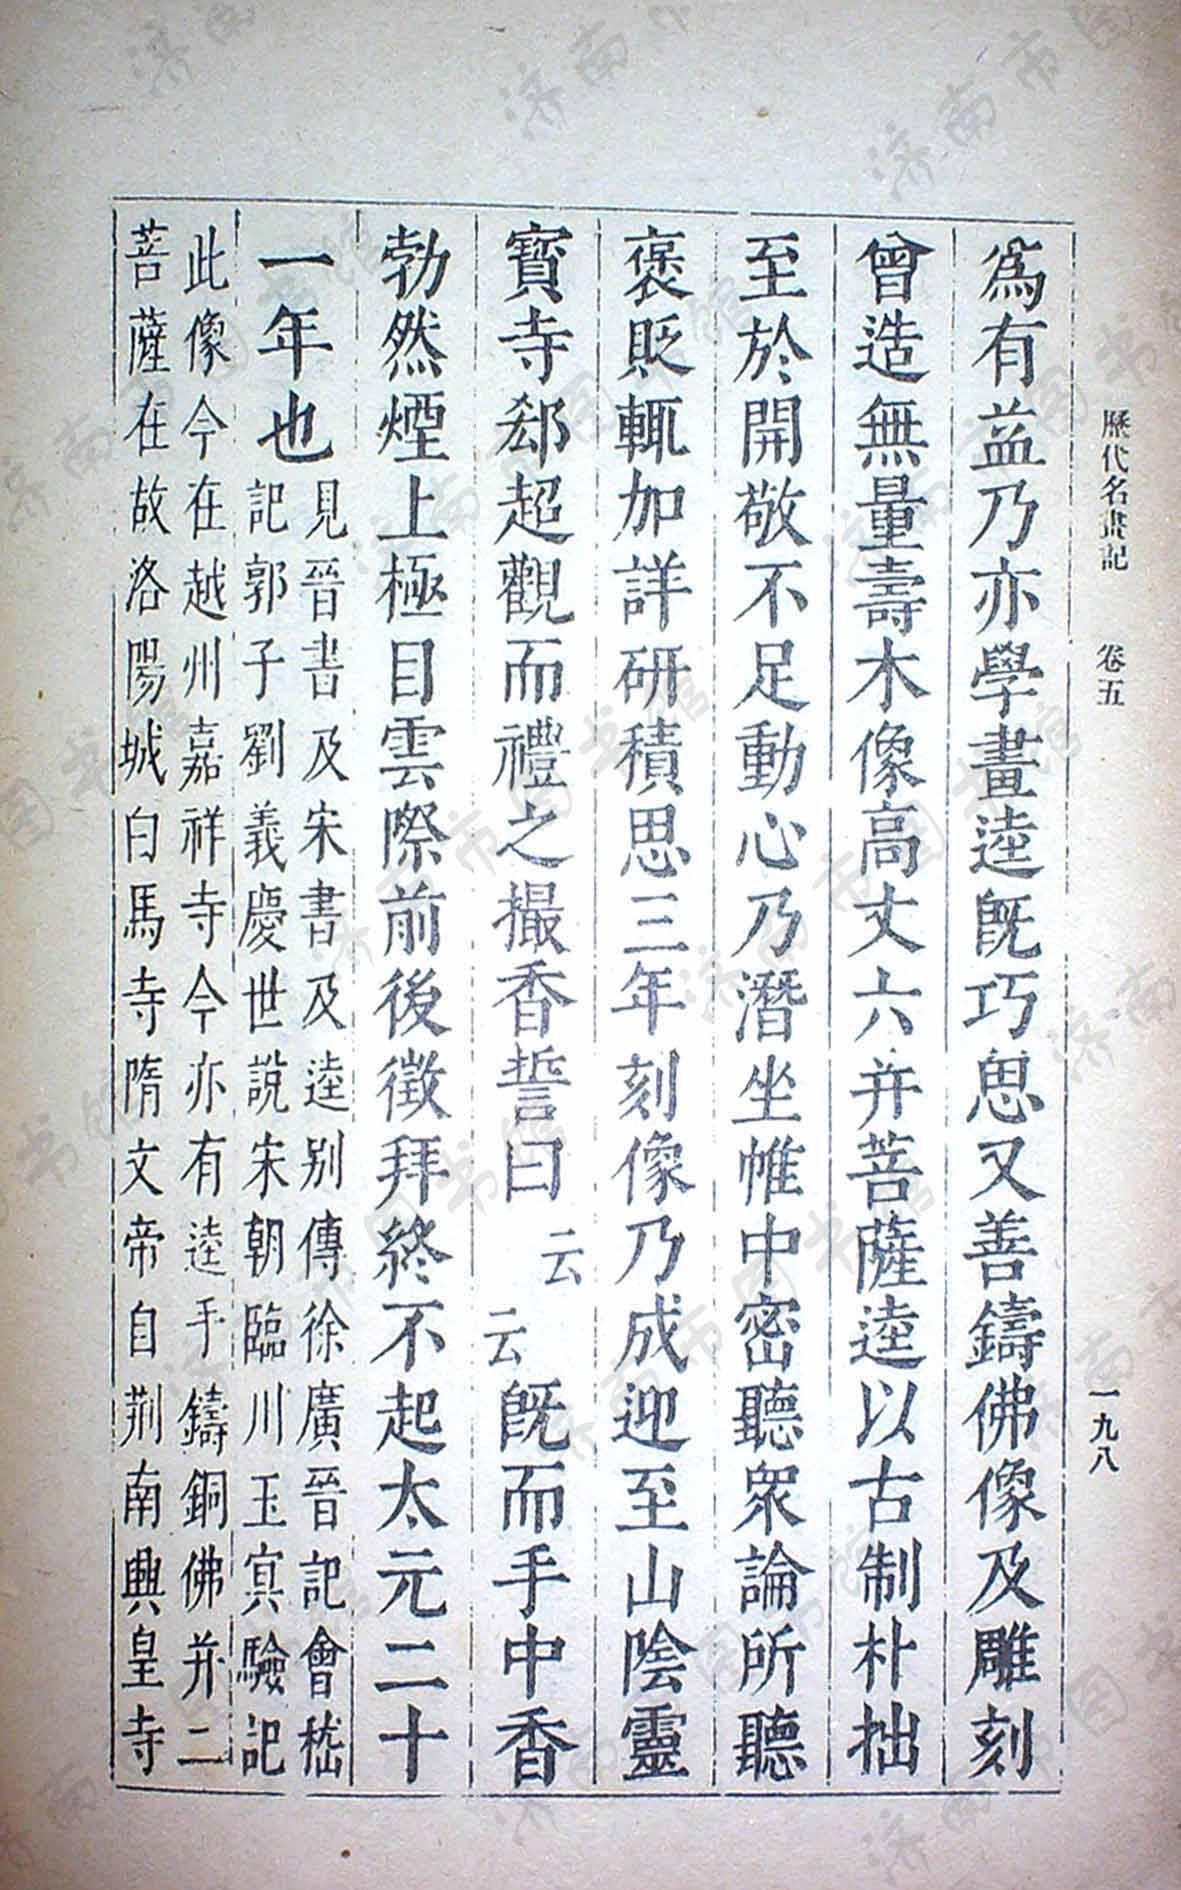 歷代名畫記 卷五 一九八
爲有益乃亦學畫逵旣巧思又善鑄佛像及雕刻
曾造無量壽木像高丈六并菩薩逵以古制朴拙
至於開敬不足動心乃潛坐帷中密聽衆論所聽
褒貶輒加詳研積思三年刻像乃成迎至山陰靈
寶寺郄超觀而禮之撮香誓曰云云旣而手中香
勃然煙上極目雲際前後徵拜終不起太元二十
一年也
見晉書及宋書及逵別傳徐廣晉記會嵇
記郭子劉義慶世說宋朝臨川王冥驗記
此像今在越州嘉祥寺今亦有逵手鑄銅佛并二
菩薩在故洛陽城白馬寺隋文帝自荆南興皇寺
济南市图书馆